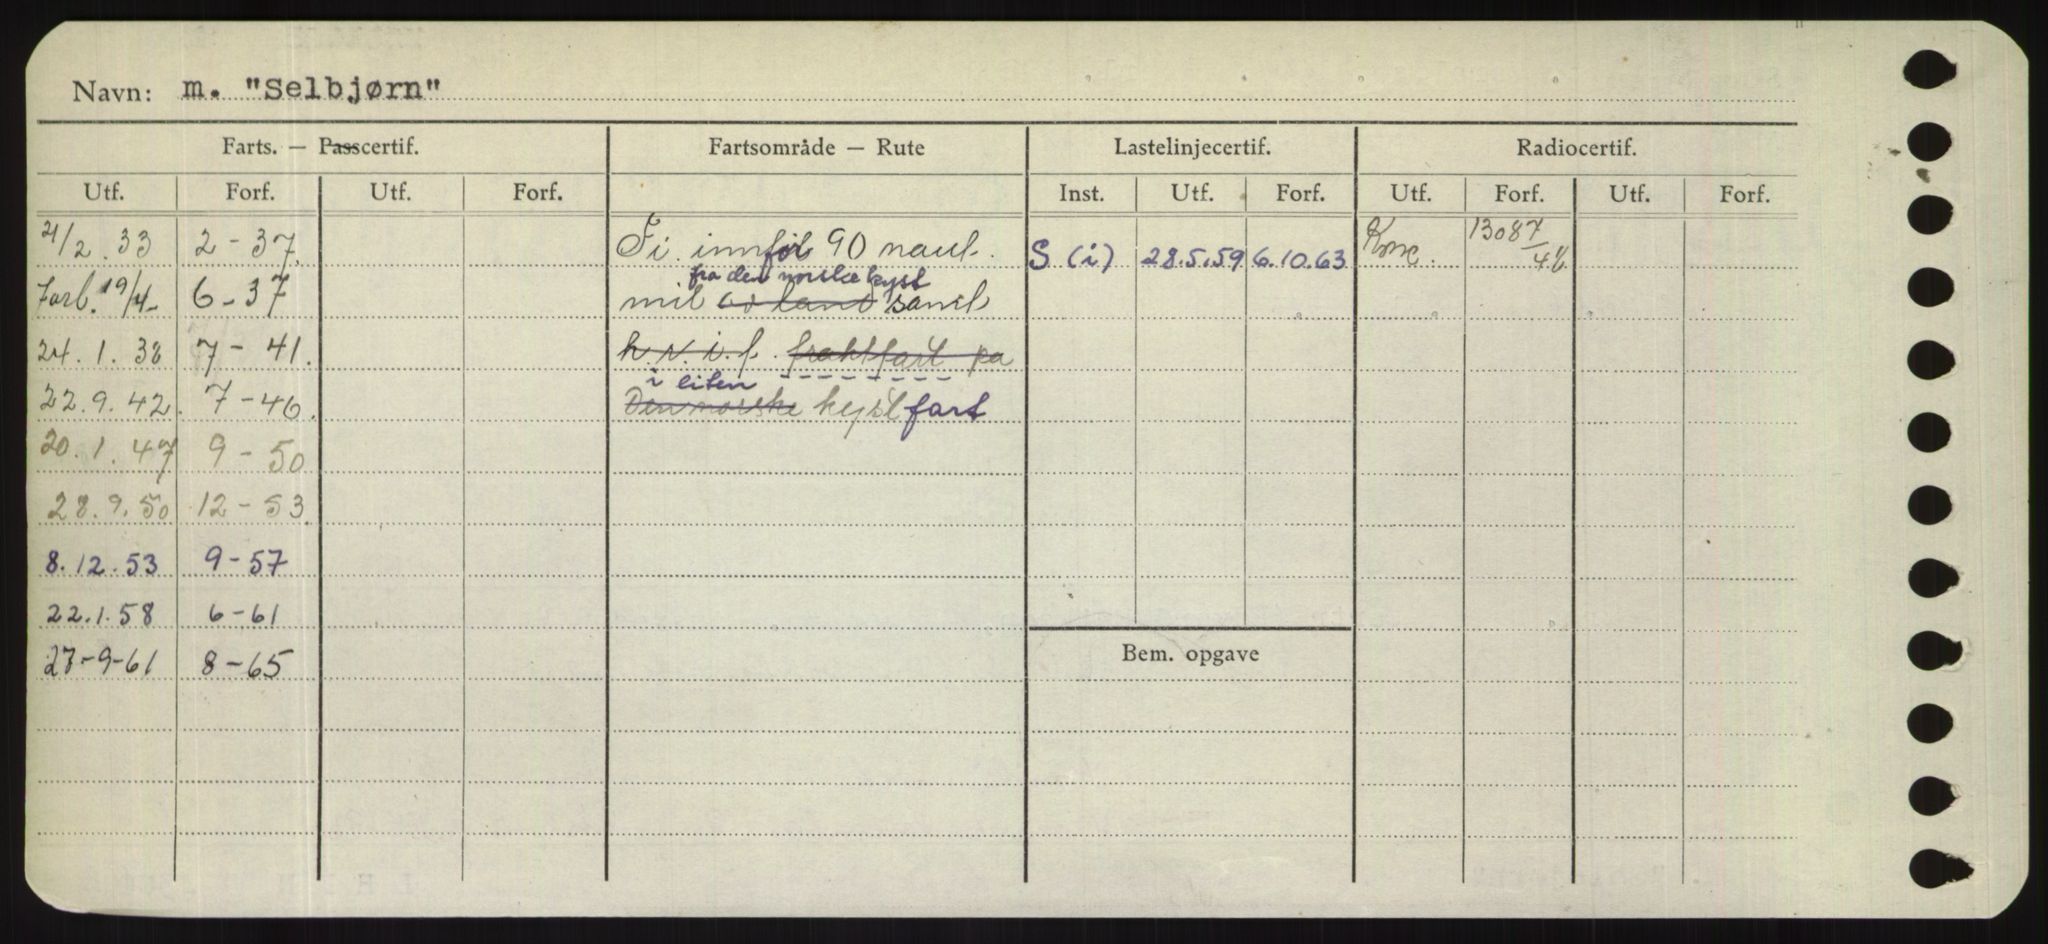 Navn: m. "Selbjørn"
Farts. — Passcertif. Fartsområde — Rute Lastelinjecertif. Radiocertif.
Utf. Forf. Utf. Forf. Inst. Utf. Forf. Utf. Forf. Utf. Forf.
21/2.33 2-37. Fi. innføl 90 naut. S (i) 28.5.59 6.10.63 13087/46
fra den norske kyst
Forl. 19/4- 6-37 mil av land samt
24.1.38 7-41. h.v.i.f. fraktfart pa
i liten
22.9.42. 7-46. Den norske kyst fart
20.1.47 9-50
28.9.50 12-53.
8.12.53 9-57
22.1.58 6-61
Bem. opgave
27-9-61 8-65